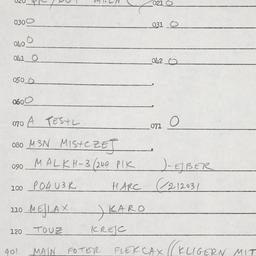 030 O 031 O
040 O
041 O 042 O
050 O
060 O
070 A TEST+L 071 O
080 M3N MIS+CZEJ
090 MALKH-3 (240 PIK )-EJBER
100 PO4U3R MARC (/212031
110 MEJLAX ) KARO
120 TOUZ KREJC
401 MAIN FOTER FLEKCAX // KLIGERN MIT